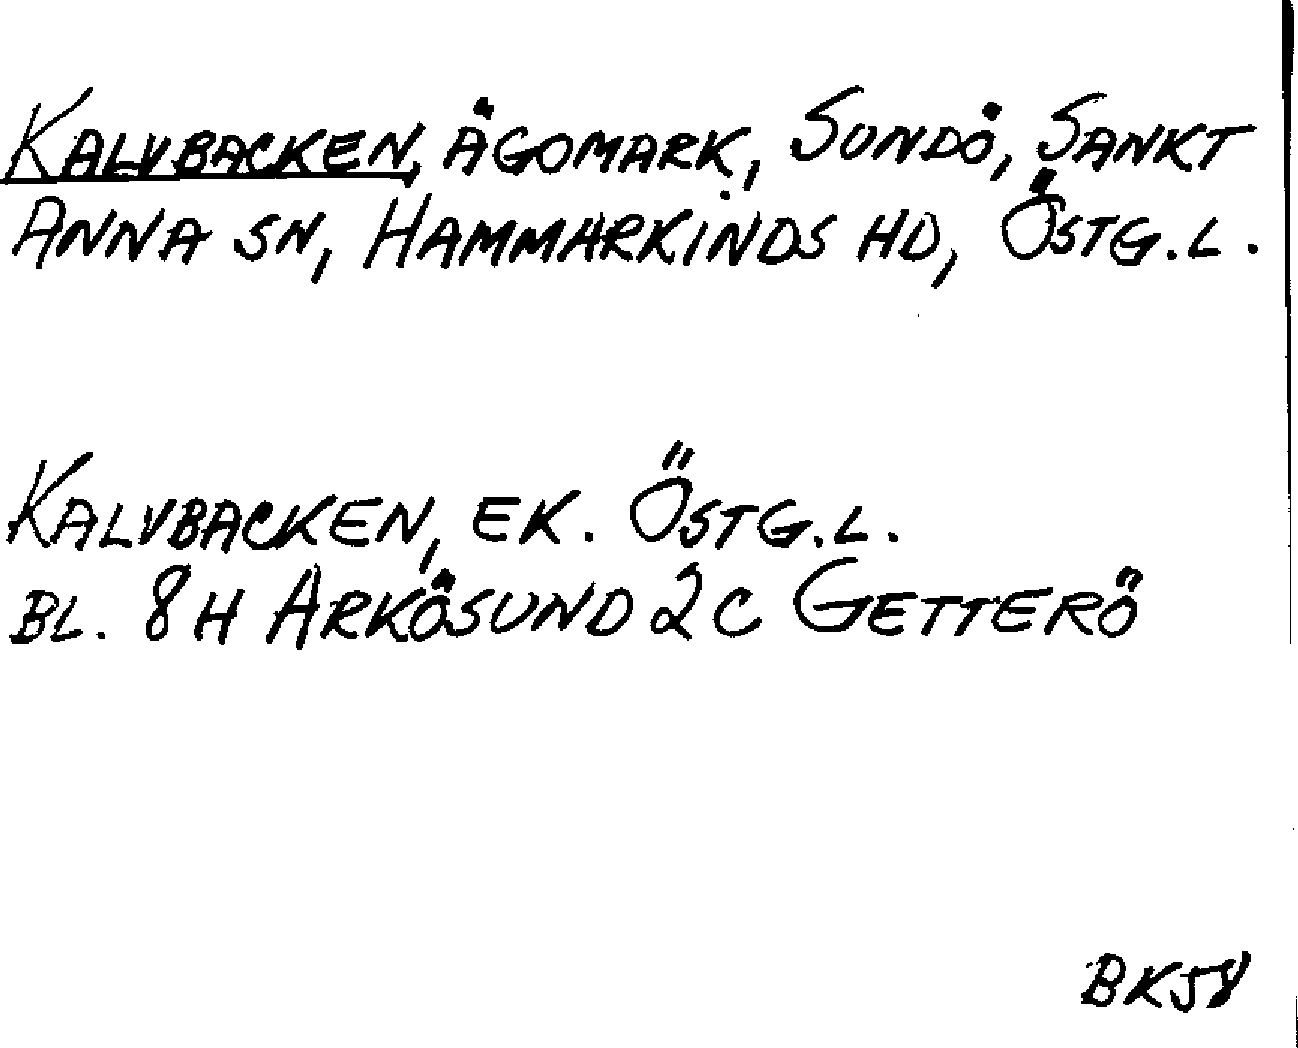 KALVBACKEN, ÄGOMARK, SUNDÖ, SANKT
ANNA SN, HAMMARKINDS HD, ÖSTG.L.
KALVBACKEN, EK. ÖSTG.L.
BL. 8H ARKÖSUND 2C GETTERÖ
BK58